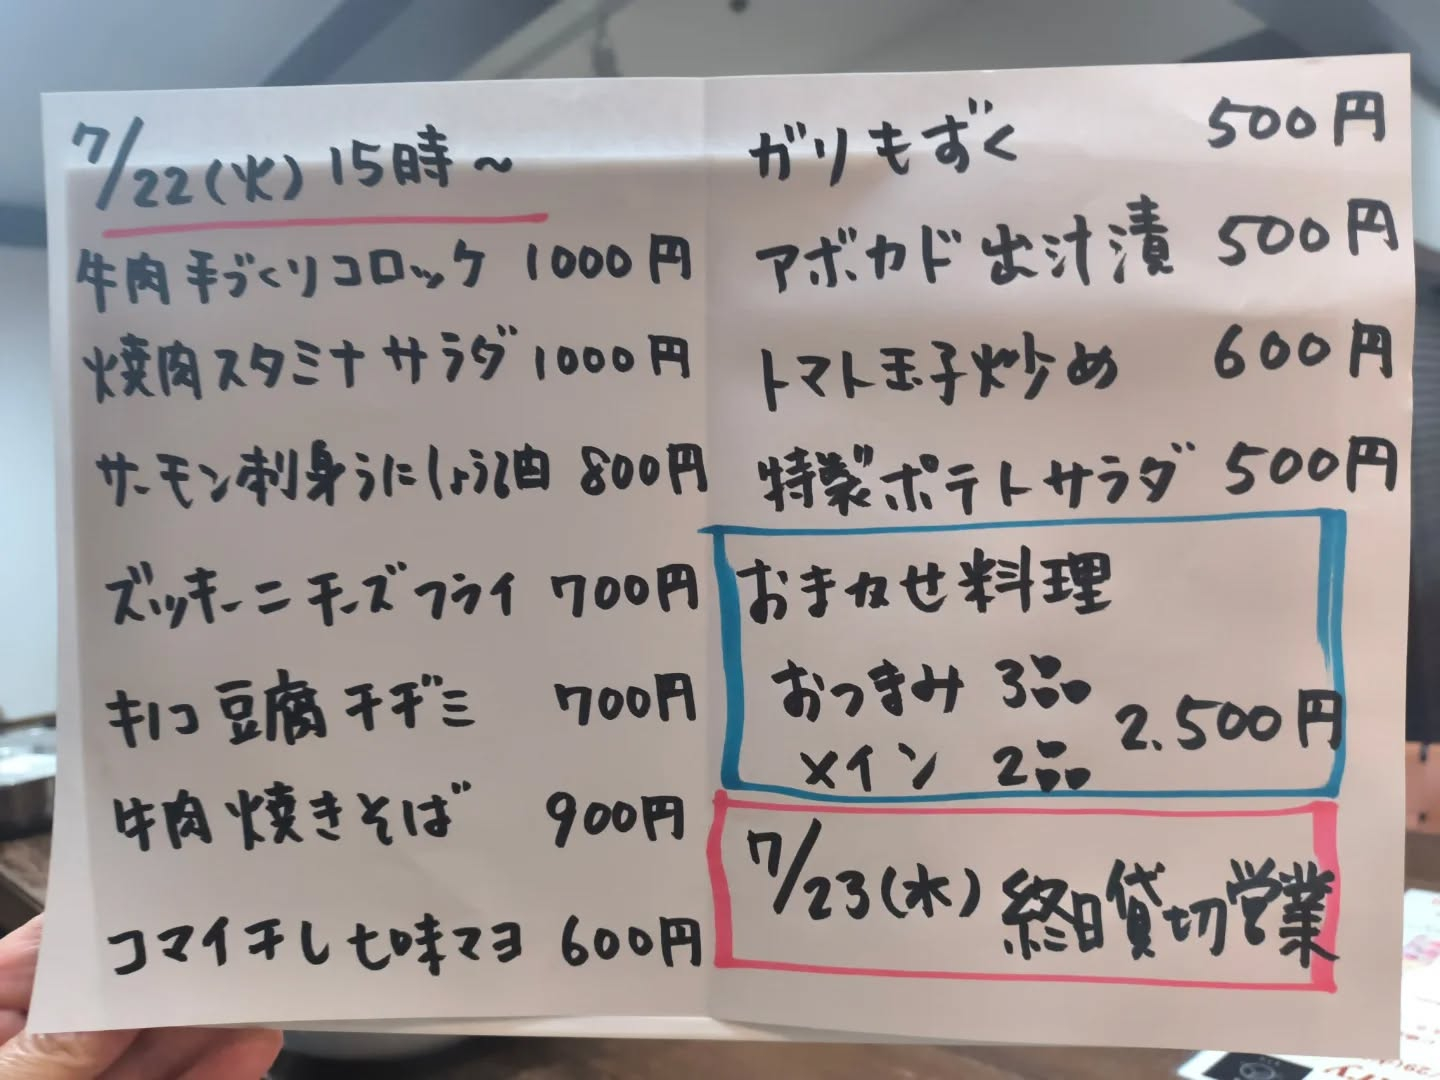 7/22(火)15時～
牛肉手づくりコロッケ 1000円
焼肉スタミナサラダ 1000円
サーモン刺身うにしょう油 800円
ズッキーニチーズフライ 700円
キノコ豆腐チヂミ 700円
牛肉焼きそば 900円
コマイ干し七味マヨ 600円
ガリもずく 500円
アボカド出汁漬 500円
トマト玉子炒め 600円
特製ポテトサラダ 500円
おまかせ料理
おつまみ 3品
メイン 2品 2.500円
7/23(水)終日貸切営業